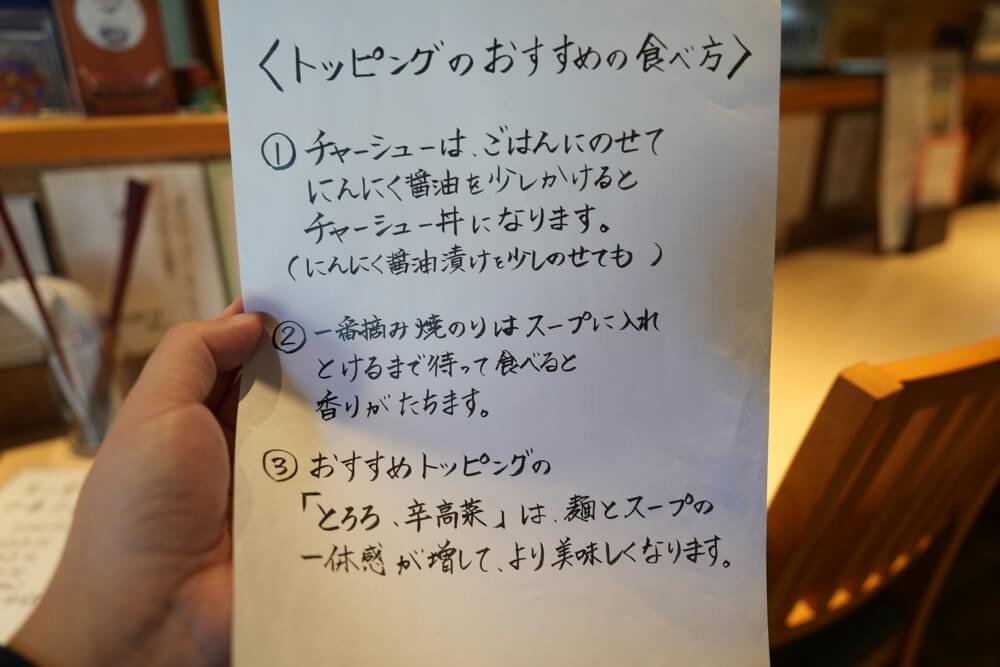 〈トッピングのおすすめの食べ方〉
① チャーシューは、ごはんにのせて
にんにく醤油を少しかけると
チャーシュー丼になります。
(にんにく醤油漬けを少しのせても )
② 一番摘み焼のりはスープに入れ
とけるまで待って食べると
香りがたちます。
③ おすすめトッピングの
「とろろ、辛高菜」は、麺とスープの
一体感が増して、より美味しくなります。